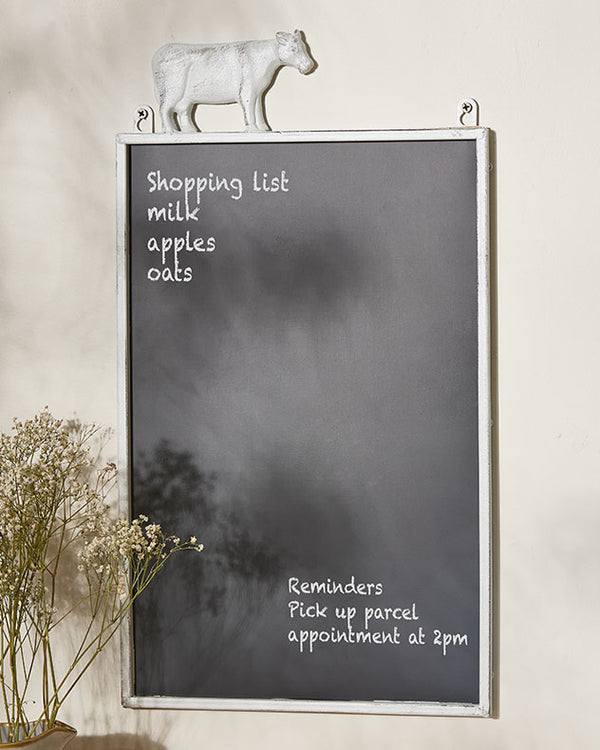 Shopping list
milk
apples
oats
Reminders
Pick up parcel
appointment at 2pm